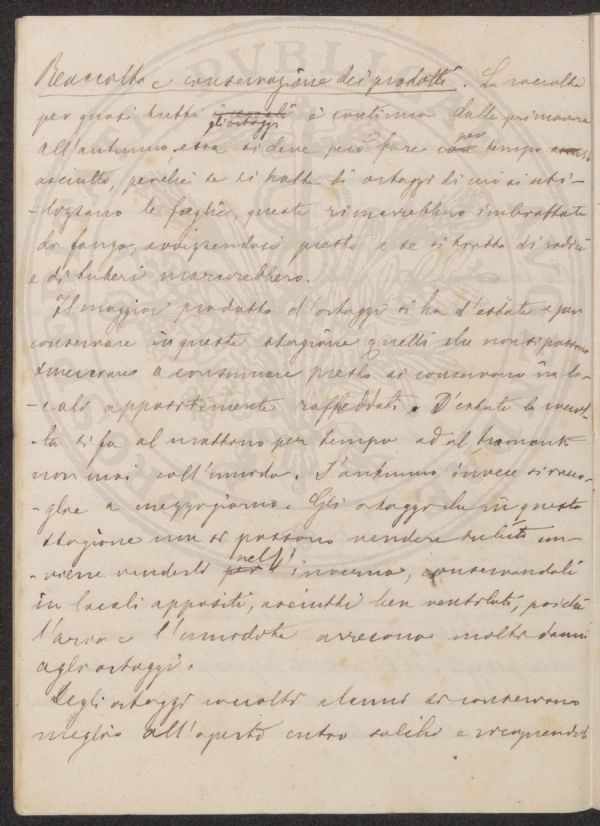 Reaccolta e conservazione dei prodotti. La raccolta
per quasi tutti gli ortaggi è continua dalla primavera
all'autunno, essa si deve però fare per tempo
asciutto, perchè se si tratta di ortaggi di cui si uti-
-lizzano le foglie, queste rimarrebbero imbrattate
da fango, avvizzendosi presto e se si tratta di radici
e di tuberi marcirebbero.
Il maggior prodotto d'ortaggi si ha d'estate e per
conservare in queste stagione quelli che non si possono
a consumare presto si conservano in lo-
-cali appositamente raffreddati. D'estate la raccol-
-ta si fa al mattino per tempo ed al tramonto
non mai coll'umido. D'autunno invece si racco-
-glie a mezzogiorno. Gli ortaggi che in questa
stagione non si possono vendere subito con-
-viene venderli nell'inverno, conservandoli
in locali appositi, asciutti ben ventilati, poichè
l'aria e l'umidità arrecano molti danni
agli ortaggi.
Degli ortaggi raccolti alcuni si conservano
meglio all'aperto entro solchi e ricoprendoli